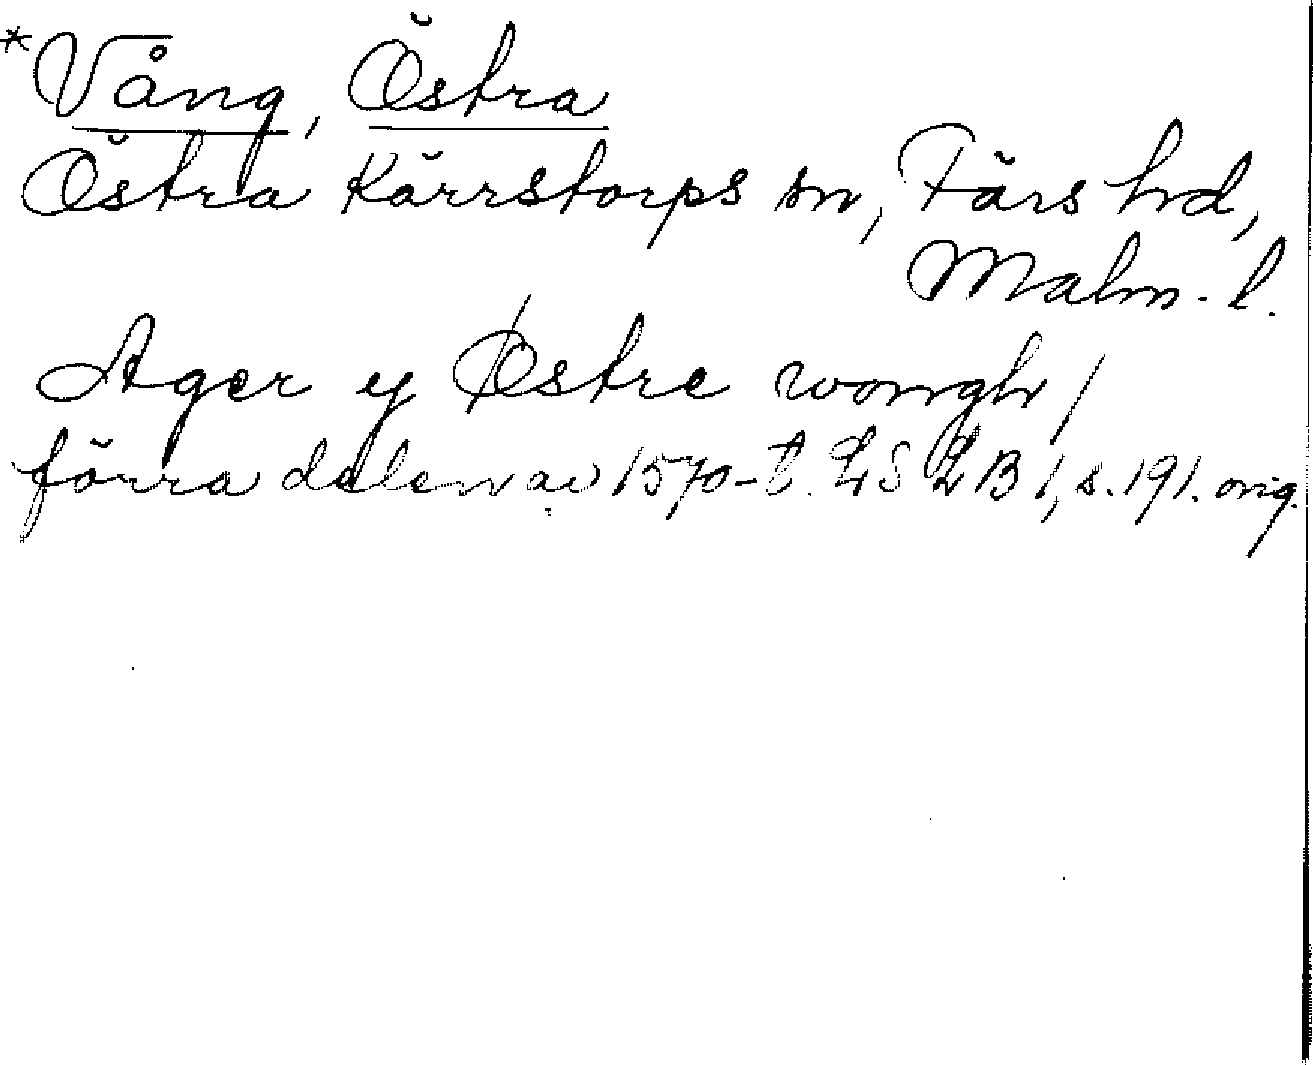 *Vång, Östra
Östra Kärrstorps sn, Färs hd,
Malm. l.
Ager y Østre wongh /
förra delen av 1570-t. LSLB 1, s. 191. orig.